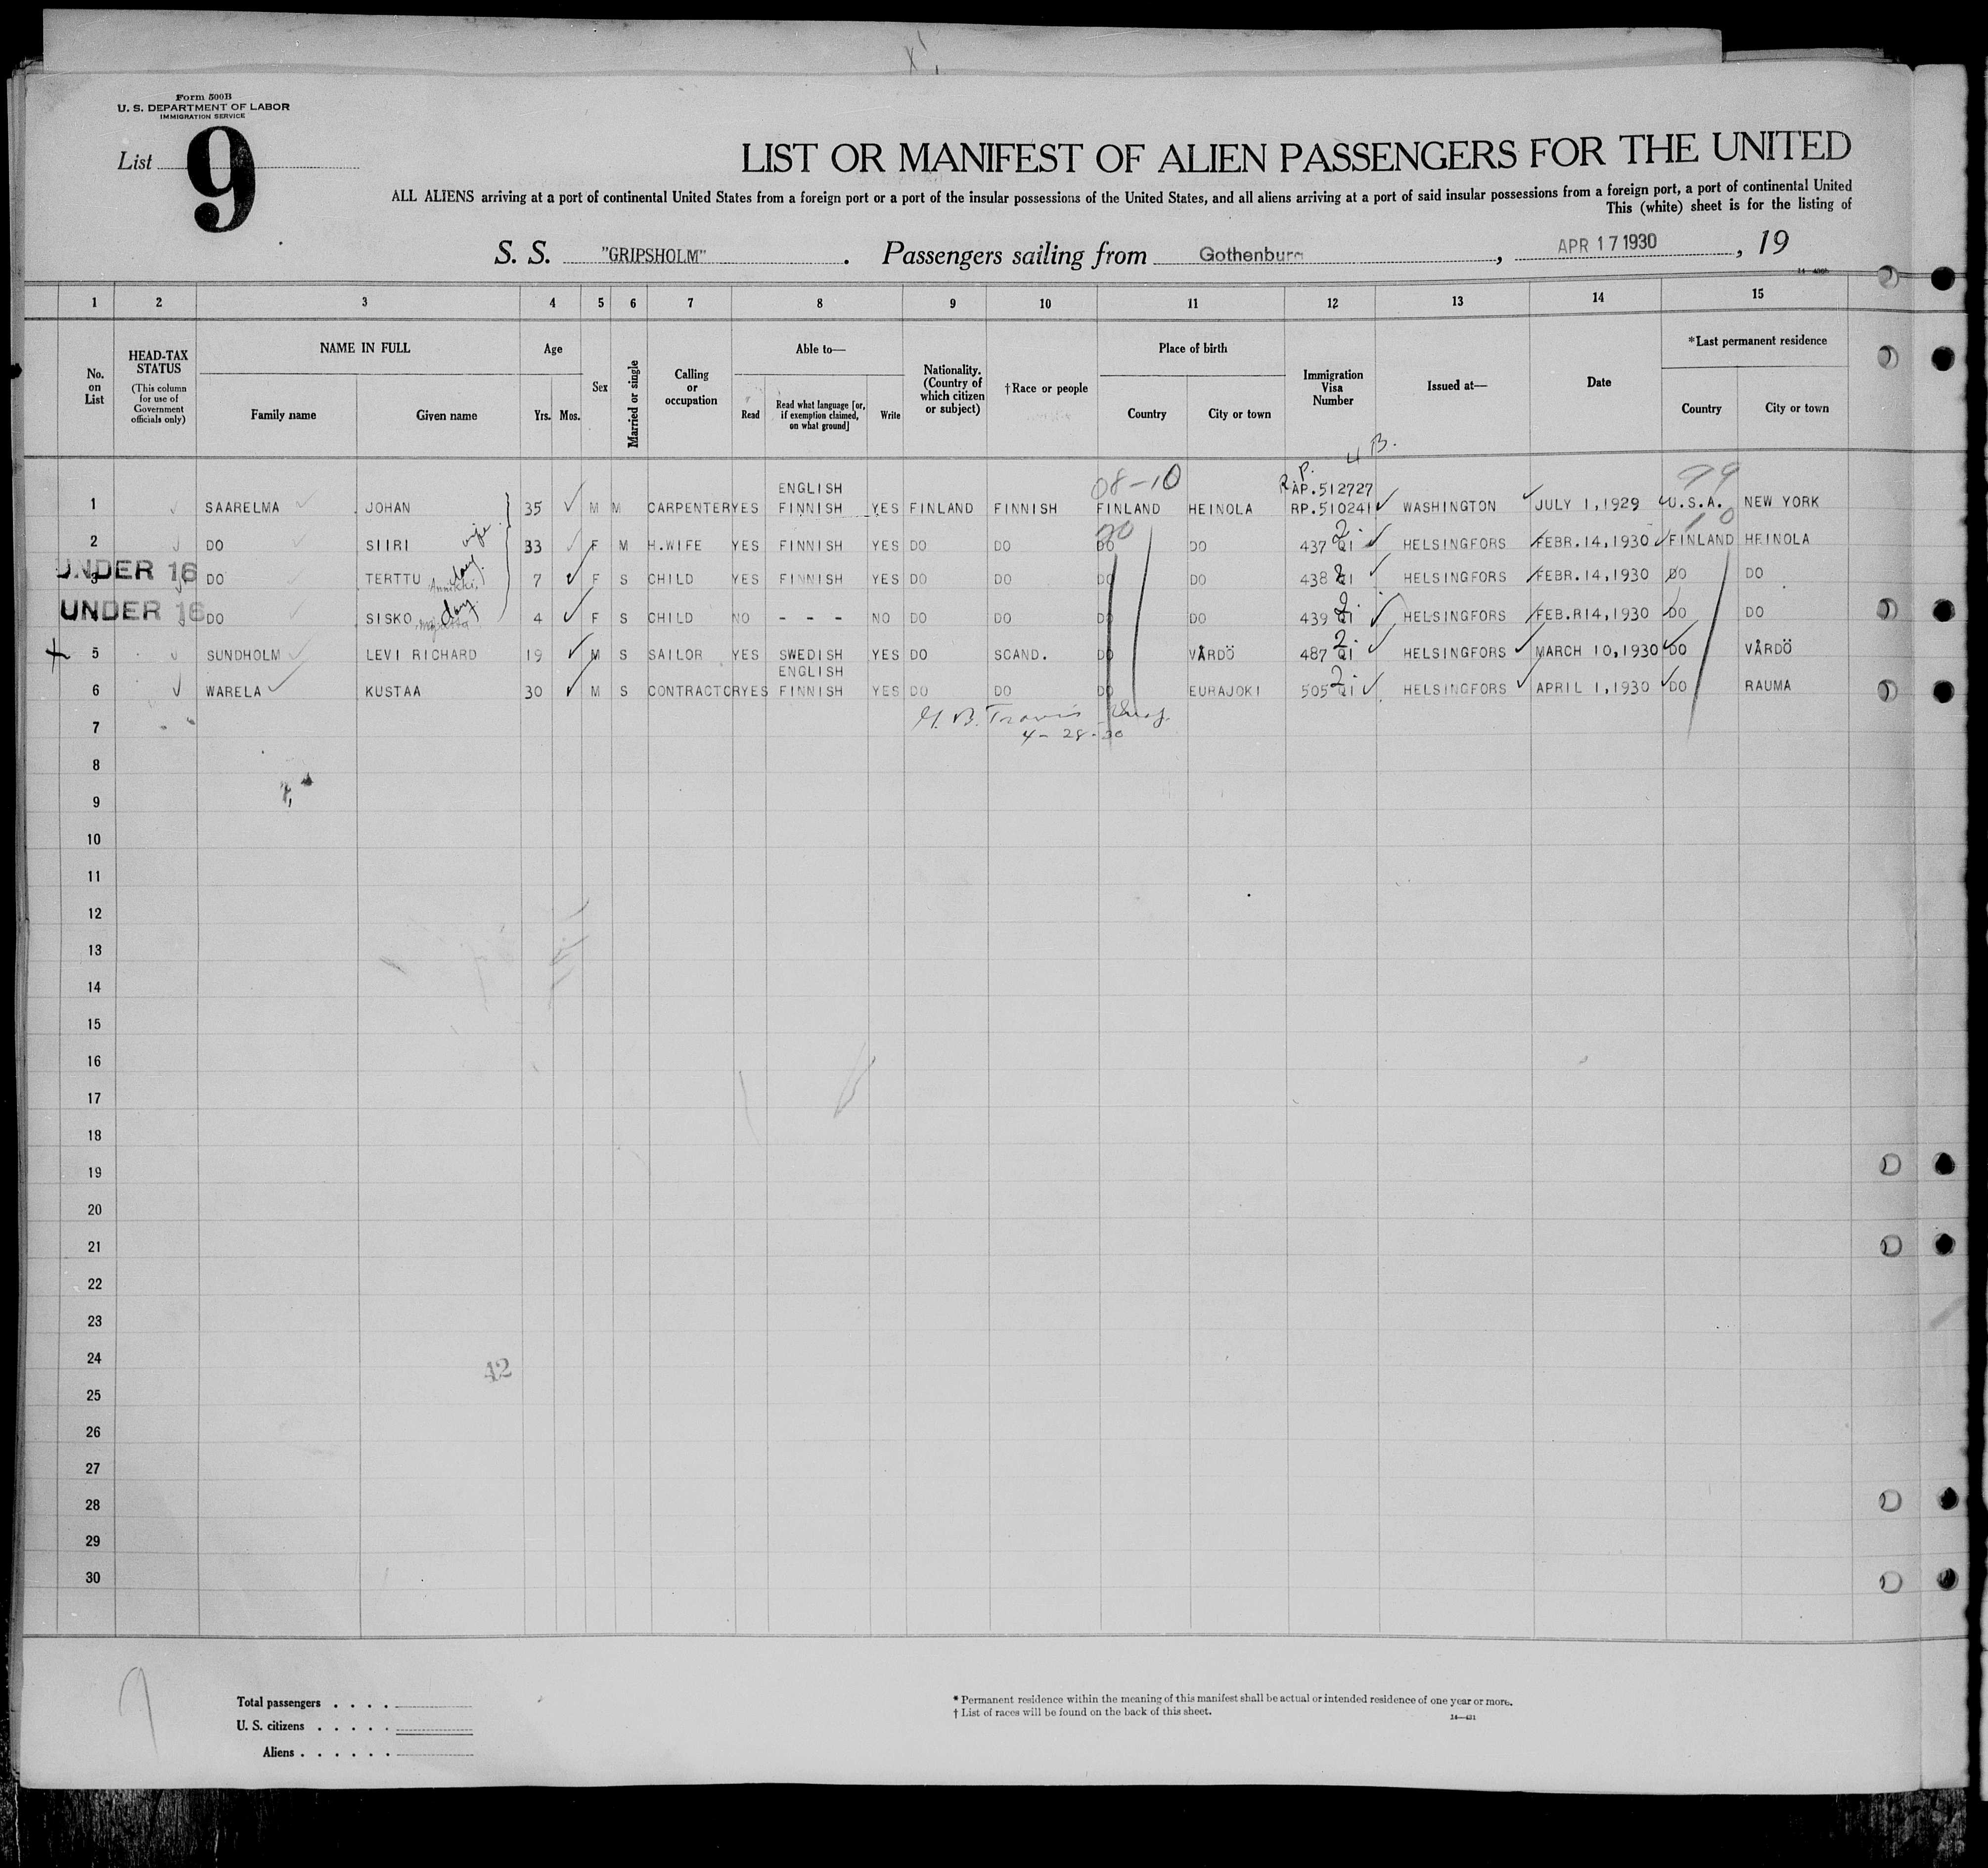 Form 500B
U. S. DEPARTMENT OF LABOR
IMMIGRATION SERVICE
List 9
LIST OR MANIFEST OF ALIEN PASSENGERS FOR THE UNITED
ALL ALIENS arriving at a port of continental United States from a foreign port or a port of the insular possessions of the United States, and all aliens arriving at a port of said insular possessions from a foreign port, a port of continental United
This (white) sheet is for the listing of
S. S. "GRIPSHOLM" . Passengers sailing from Gothenburg, APR 17 1930, 19
1 2 3 4 5 6 7 8 9 10 11 12 13 14 15
No. on List
HEAD-TAX STATUS (This column for use of Government officials only)
NAME IN FULL
Family name Given name
Age
Yrs. Mos.
Sex
Married or single
Calling or occupation
Able to—
Read Read what language [or, if exemption claimed, on what ground] Write
Nationality. (Country of which citizen or subject)
†Race or people
Place of birth
Country City or town
Immigration Visa Number
Issued at—
Date
*Last permanent residence
Country City or town
08-10
ENGLISH P. 512727
1 SAARELMA JOHAN 35 M M CARPENTER YES FINNISH YES FINLAND FINNISH FINLAND HEINOLA RP.510241 WASHINGTON JULY 1,1929 U.S.A. NEW YORK
2 DO SIIRI wife 33 F M H.WIFE YES FINNISH YES DO DO DO DO 437 HELSINGFORS FEBR.14,1930 FINLAND HEINOLA
UNDER 16 3 DO TERTTU Annikki 7 F S CHILD YES FINNISH YES DO DO DO DO 438 HELSINGFORS FEBR.14,1930 DO DO
UNDER 16 DO SISKO 4 F S CHILD NO - - - NO DO DO DO DO 439 HELSINGFORS FEB.R14,1930 DO DO
5 SUNDHOLM LEVI RICHARD 19 M S SAILOR YES SWEDISH YES DO SCAND. DO VÅRDÖ 487 HELSINGFORS MARCH 10,1930 DO VÅRDÖ
ENGLISH
6 WARELA KUSTAA 30 M S CONTRACTOR YES FINNISH YES DO DO DO EURAJOKI 505 HELSINGFORS APRIL 1,1930 DO RAUMA
7
4-28-30
8
9
10
11
12
13
14
15
16
17
18
19
20
21
22
23
24
42
25
26
27
28
29
30
Total passengers . . . .
U. S. citizens . . . . .
Aliens . . . . . .
* Permanent residence within the meaning of this manifest shall be actual or intended residence of one year or more.
† List of races will be found on the back of this sheet.
14—431